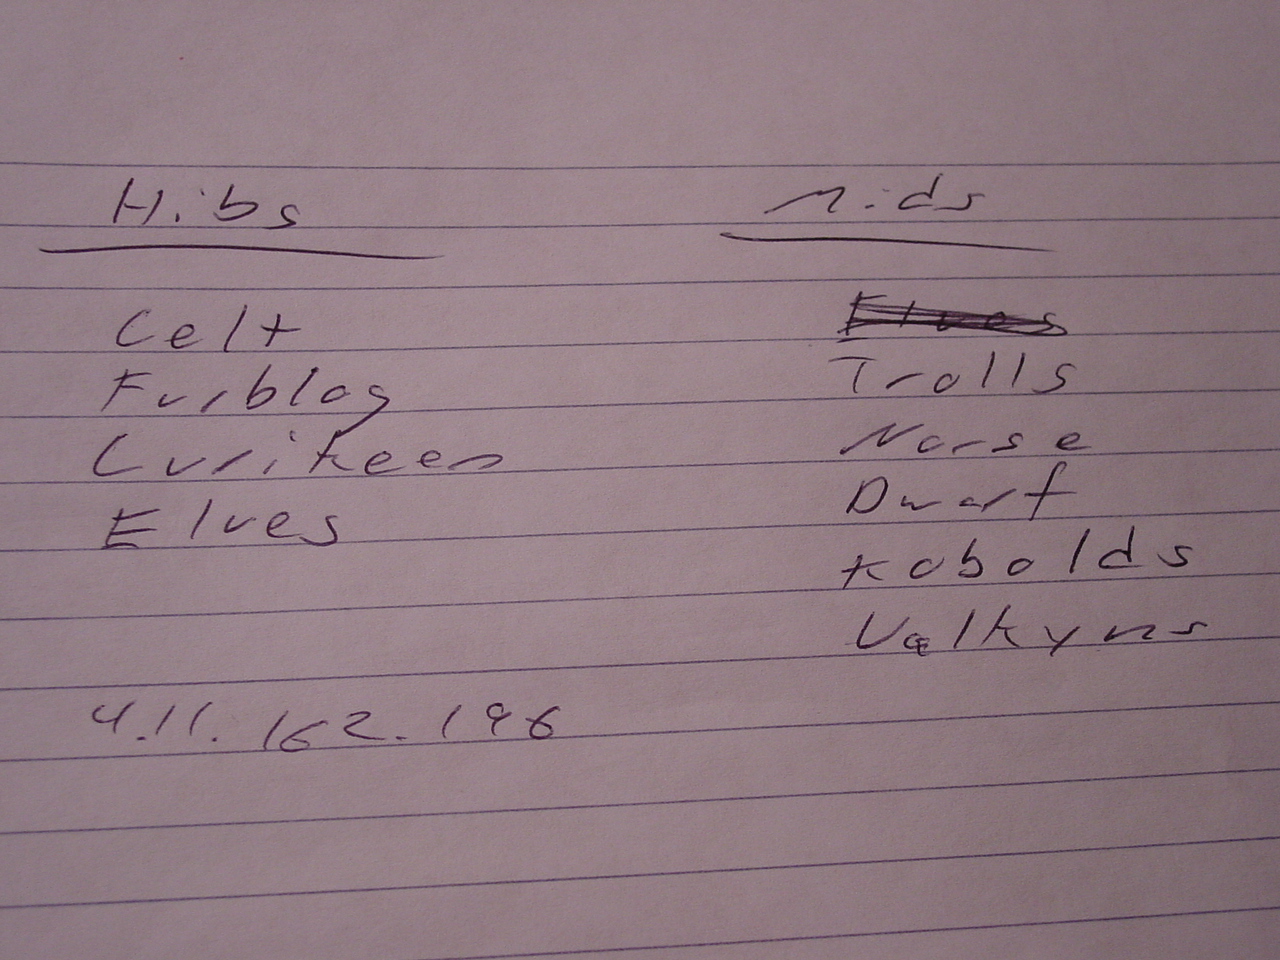 Hibs
Celt
Furblog
Lurikeen
Elves
Mids
Elves
Trolls
Norse
Dwarf
Kobolds
Valkyns
4.11.162.196